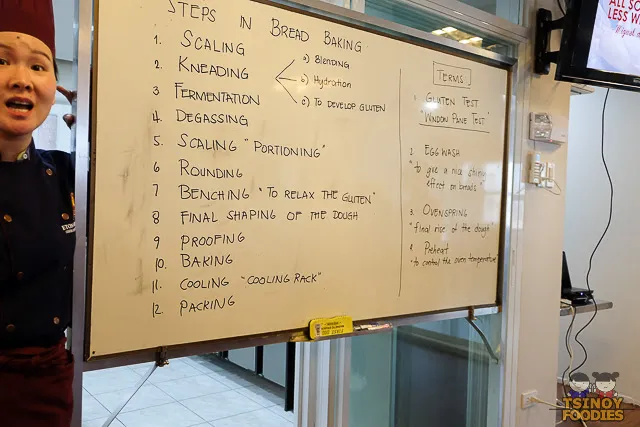 STEPS IN BREAD BAKING
1. SCALING
2. KNEADING
a) BLENDING
b) HYDRATION
c) TO DEVELOP GLUTEN
3 FERMENTATION
4. DEGASSING
5. SCALING "PORTIONING"
6. ROUNDING
7 BENCHING "TO RELAX THE GLUTEN"
8 FINAL SHAPING OF THE DOUGH
9 PROOFING
10. BAKING
11. COOLING "COOLING RACK"
12. PACKING
TERMS
GLUTEN TEST
"WINDOW PANE TEST"
2. EGG WASH
"to give a nice shiny
effect on breads"
3. OVENSPRING
"final rise of the dough"
4. Preheat
"to control the oven temperature"
ALL SO
LESS W
TSINOY
FOODIES